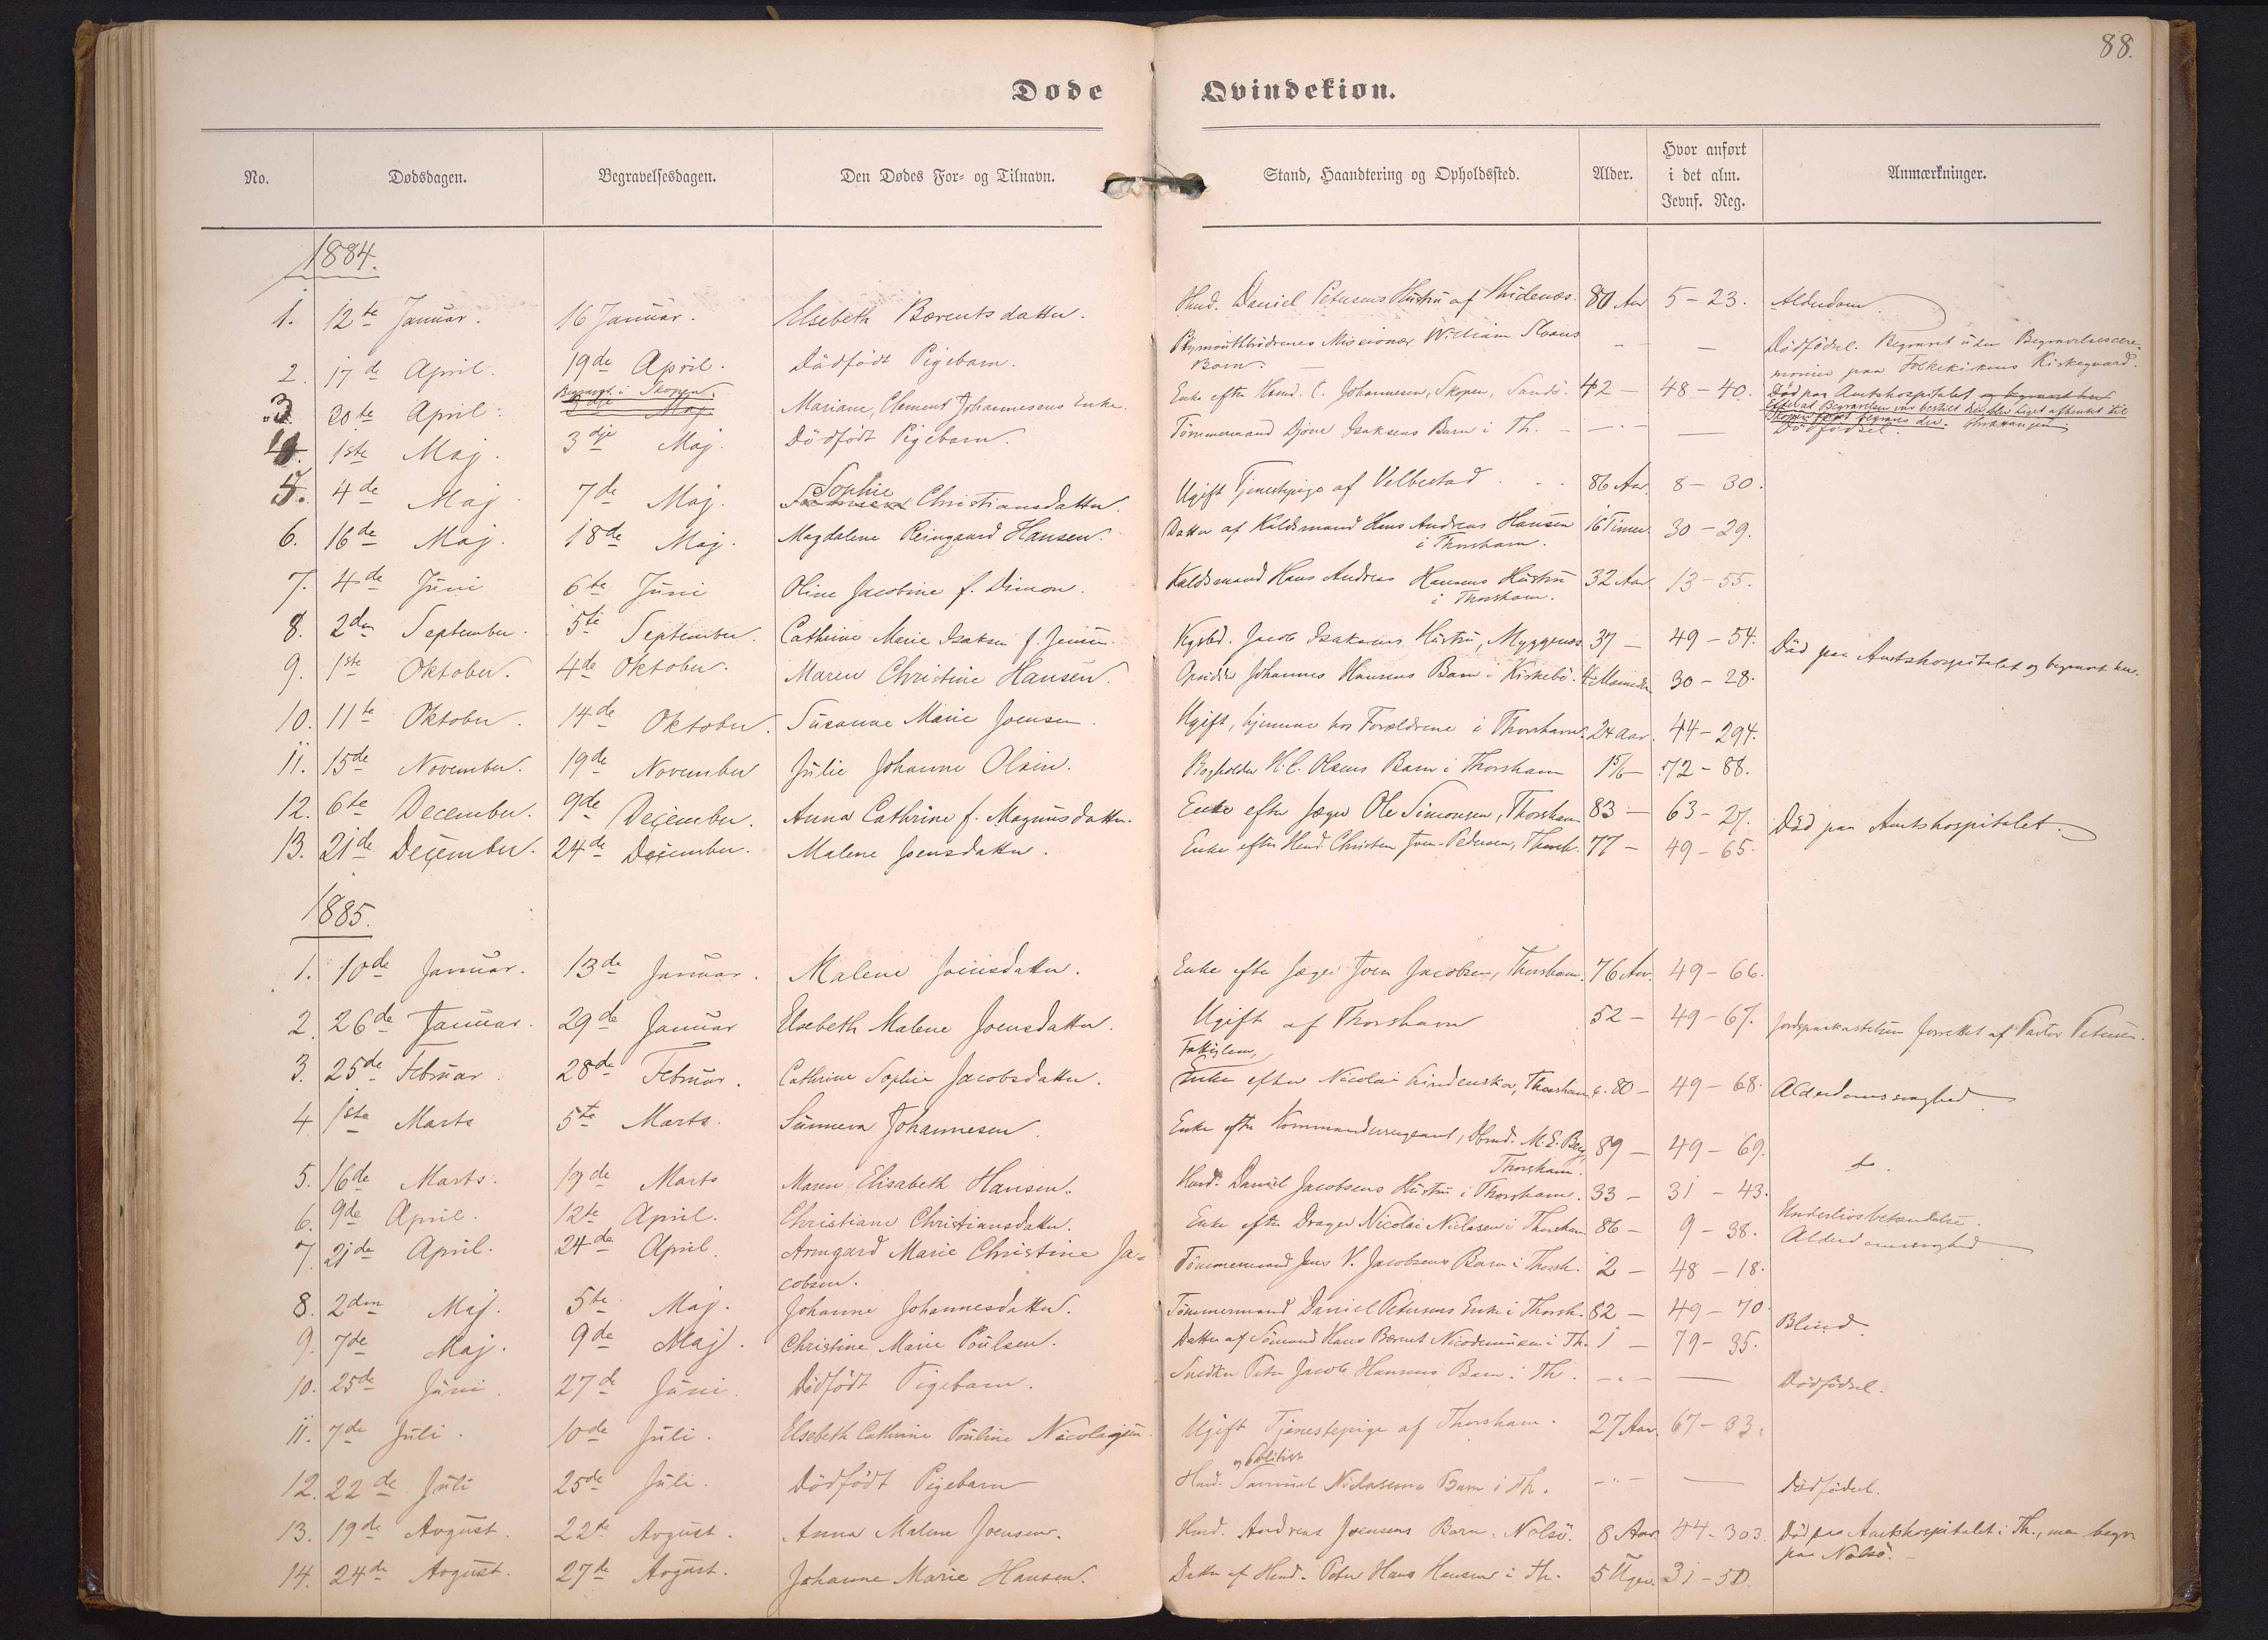 88.
Døde Qvindekiøn.
No. Dødsdagen. Begravelsesdagen. Den Dødes For- og Tilnavn. Stand, Haandtering og Opholdssted. Alder. Hvor anført i det alm. Jevnf. Reg. Anmærkninger.
1884.
1. 12te Januar. 16 Januar. Elsebeth Barentsdatter. Hmd. Daniel Petersens Hustru af 80 Aar 5-23. Alderdom
2. 17de April. 19de April. Dödfödt Pigebarn. Plymouthbrödrenes Missionær William Sloans Barn. - - Dödfödsel. Begravet uden Begravelsescere-
monier paa Folkekirkens Kirkegaard.
3. 20te April. Begravet i Skopen. Maj. Mariane, Clement Johannesens Enke. Enke efter Hmd. C. Johannesen, Skopen, Sandö. 42 - 48-40. Död paa Amtshospitalet og begravet her
Efter at Begravelsen var bestilt her blev Liget afhentet til
Skopen for at begraves der.
4. 1ste Maj. 3dje Maj. Dödfödt Pigebarn. Tömmermand Djone Isaksens Barn i Th. - - Dödfödsel.
5. 4de Maj. 7de Maj. Sophie Christiansdatter. Ugift Tjenestepige af Velbestad 86 Aar. 8-30.
6. 16de Maj. 18de Maj. Magdalene Reingaard Hansen. Datter af Kuldsmand Hans Andreas Hansen i Thorshavn. 16 Timer. 30-29.
7. 4de Juni 6te Juni Oline Jacobine f. Dimon. Kuldsmand Hans Andreas Hansens Hustru i Thorshavn. 32 Aar. 13-55.
8. 2den September. 5te September. Cathrine Marie Isaksen f. Jensen. Jacob Isaksens Hustru, Myggenæs 37 - 49-54. Död paa Amtshospitalet og begravet her.
9. 1ste Oktober. 4de Oktober. Maren Christine Hansen. Opsidder Johannes Hansens Barn i Kirkebö. Maaneder 30-28.
10. 11te Oktober. 14de Oktober. Susanne Marie Joensen. Ugift, hjemme hos Forældrene i Thorshavn. 24 Aar. 44-294.
11. 15de November. 19de November Julie Johanne Olsen. Bogholder H. C. Olsens Barn i Thorshavn 1 5/6 - 72-88.
12. 6te December. 9de December. Anna Cathrine f. Magnusdatter. Enke efter Jæger Ole Simonsen, Thorshavn 83 - 63-27. Död paa Amtshospitalet.
13. 21de December. 24de December. Malene Joensdatter. Enke efter Hmd. Christen Joen-Pedersen, Thorsh. 77 - 49-65.
1885.
1. 10de Januar. 13de Januar. Malene Joensdatter. Enke efter Jæger Joen Jacobsen, Thorshavn. 76 Aar. 49-66.
2. 26de Januar. 29de Januar Elsebeth Malene Joensdatter. Ugift af Thorshavn 52 - 49-67. Jordspaakastelsen forrettet af Pastor Petersen.
3. 25de Februar. 28de Februar. Cathrine Sophie Jacobsdatter. Fattiglem, Enke efter Nicolai Lindenskov, Thorshavn c. 80 - 49-68. Alderdomssvaghed
4. 1ste Marts 5te Marts. Sunneva Johannesen. Enke efter Kommandersergeant, Hmd. M. E. Berg, Thorshavn. 89 - 49-69. do.
5. 16de Marts. 19de Marts Maren Elisabeth Hansen. Hmd. Daniel Jacobsens Hustru i Thorshavn. 33 - 31-43. Underlivsbetændelse.
6. 9de April. 12te April. Christiane Christiansdatter. Enke efter Drager Nicolai Niclasen i Thorshavn 86 - 9-38. Alderdomssvaghed
7. 21de April. 24de April. Armgard Marie Christine Ja-
cobsen. Tömmermand Jens V. Jacobsens Barn i Thorsh. 2 - 48-18.
8. 2den Maj. 5te Maj. Johanne Johannesdatter. Tömmermand Daniel Petersens Enke i Thorsh. 82 - 49-70. Blind.
9. 7de Maj. 9de Maj. Christine Marie Poulsen. Datter af Sömand Hans Barent Nicodemussen i Th. 1 - 79-35.
10. 25de Juni 27de Juni. Dödfödt Pigebarn. Snedker Peter Jacob Hansens Barn i Th. - - Dödfödsel.
11. 7de Juli. 10de Juli. Elsebeth Cathrine Pouline Nicolajsen. Ugift Tjenestepige af Thorshavn. 27 Aar. 67-33.
12. 22de Juli 25de Juli. Dödfödt Pigebarn Hmd. og Politist Samuel Niclasens Barn i Th. - - Dödfödsel.
13. 19de Avgust. 22de Avgust. Anna Malene Joensen. Hmd. Andreas Joensens Barn, Nolsö. 8 Aar. 44-303. Död paa Amtshospitalet i Th., men begr.
paa Nolsö.
14. 24de Avgust. 27de Avgust. Johanne Marie Hansen. Datter af Hmd. Peter Hans Hansen i Th. 5 Uger. 31-50.